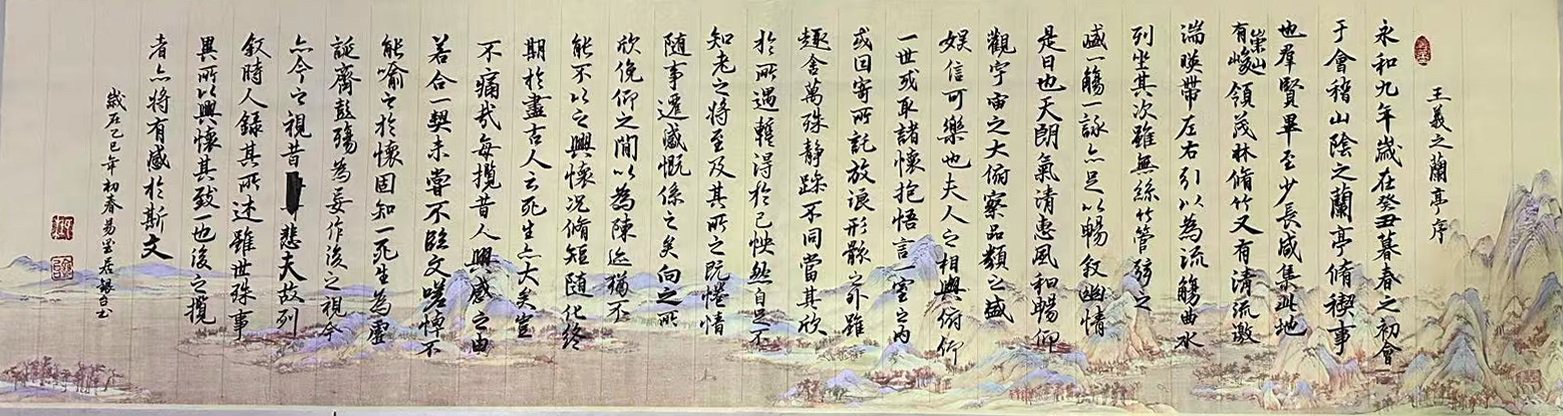 王羲之蘭亭序
永和九年歲在癸丑暮春之初會
于會稽山陰之蘭亭脩禊事
也羣賢畢至少長咸集此地
有崇山峻領茂林脩竹又有清流激
湍暎帶左右引以為流觴曲水
列坐其次雖無絲竹管弦之
盛一觴一詠亦足以暢敘幽情
是日也天朗氣清惠風和暢仰
觀宇宙之大俯察品類之盛
娛信可樂也夫人之相與俯仰
一世或取諸懷抱悟言一室之內
或因寄所託放浪形骸之外雖
趣舍萬殊静躁不同當其欣
於所遇蹔得於己怏然自足不
知老之將至及其所之既惓情
随事遷感慨係之矣向之所
欣俛仰之間以為陳迹猶不
能不以之興懷况脩短随化終
期於盡古人云死生亦大矣豈
不痛哉每攬昔人興感之由
若合一契未嘗不臨文嗟悼不
能喻之於懷固知一死生為虛
誕齊彭殤為妄作後之視今
亦今之視昔悲夫故列
敘時人錄其所述雖世殊事
異所以興懷其致一也後之攬
者亦將有感於斯文
歲在乙巳年初春易